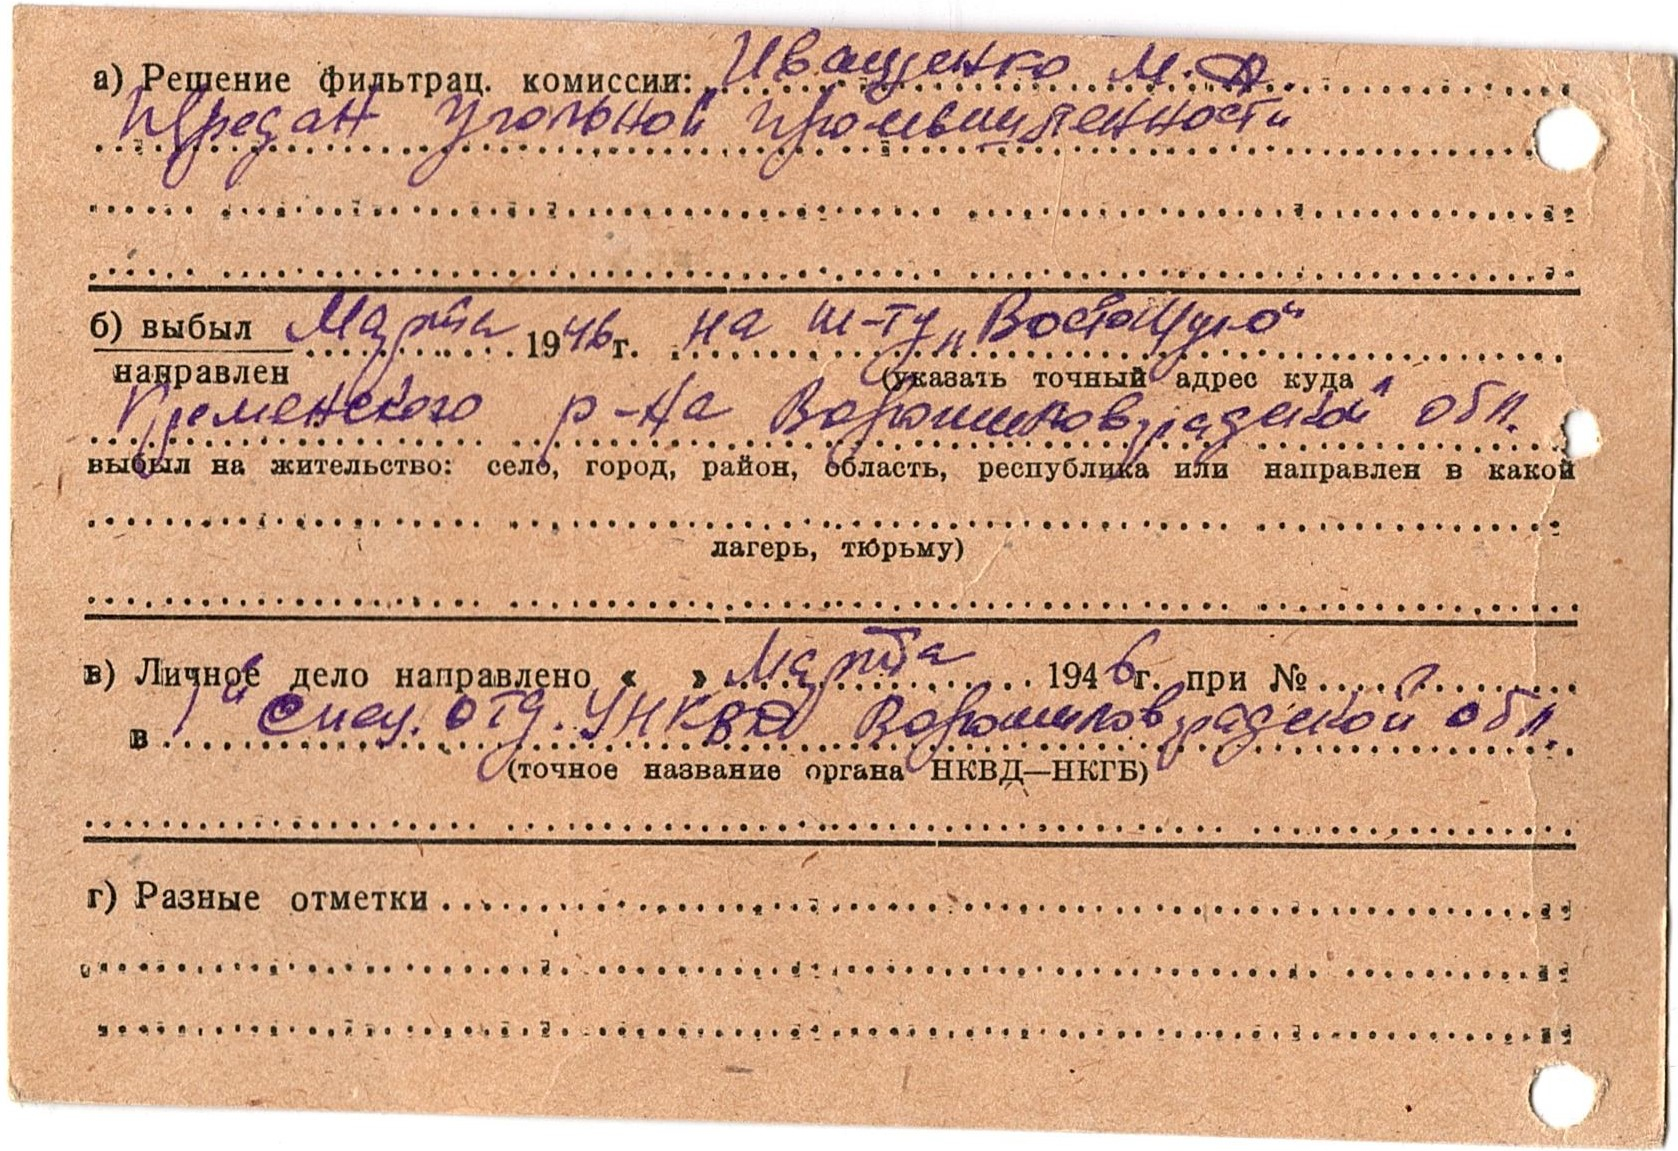 а) Решение фильтрац. комиссии: Иващенко М. Д.
Передан угольной промышленности
б) выбыл Марта 1946 г. на ш-ту „Восточную"
направлен (указать точный адрес куда
Кременского р-на Ворошиловградской обл.
выбыл на жительство: село, город, район, область, республика или направлен в какой
лагерь, тюрьму)
в) Личное дело направлено « » Марта 1946 г. при №
в 1й Спец. отд. УНКВД Ворошиловградской обл.
(точное название органа НКВД—НКГБ)
г) Разные отметки